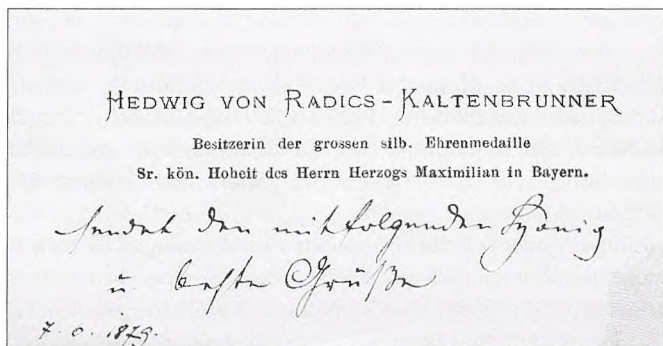 HEDWIG VON RADICS-KALTENBRUNNER
Besitzerin der grossen silb. Ehrenmedaille
Sr. kön. Hoheit des Herrn Herzogs Maximilian in Bayern.
sendet den mitfolgenden Honig
u. beste Grüße
1879.